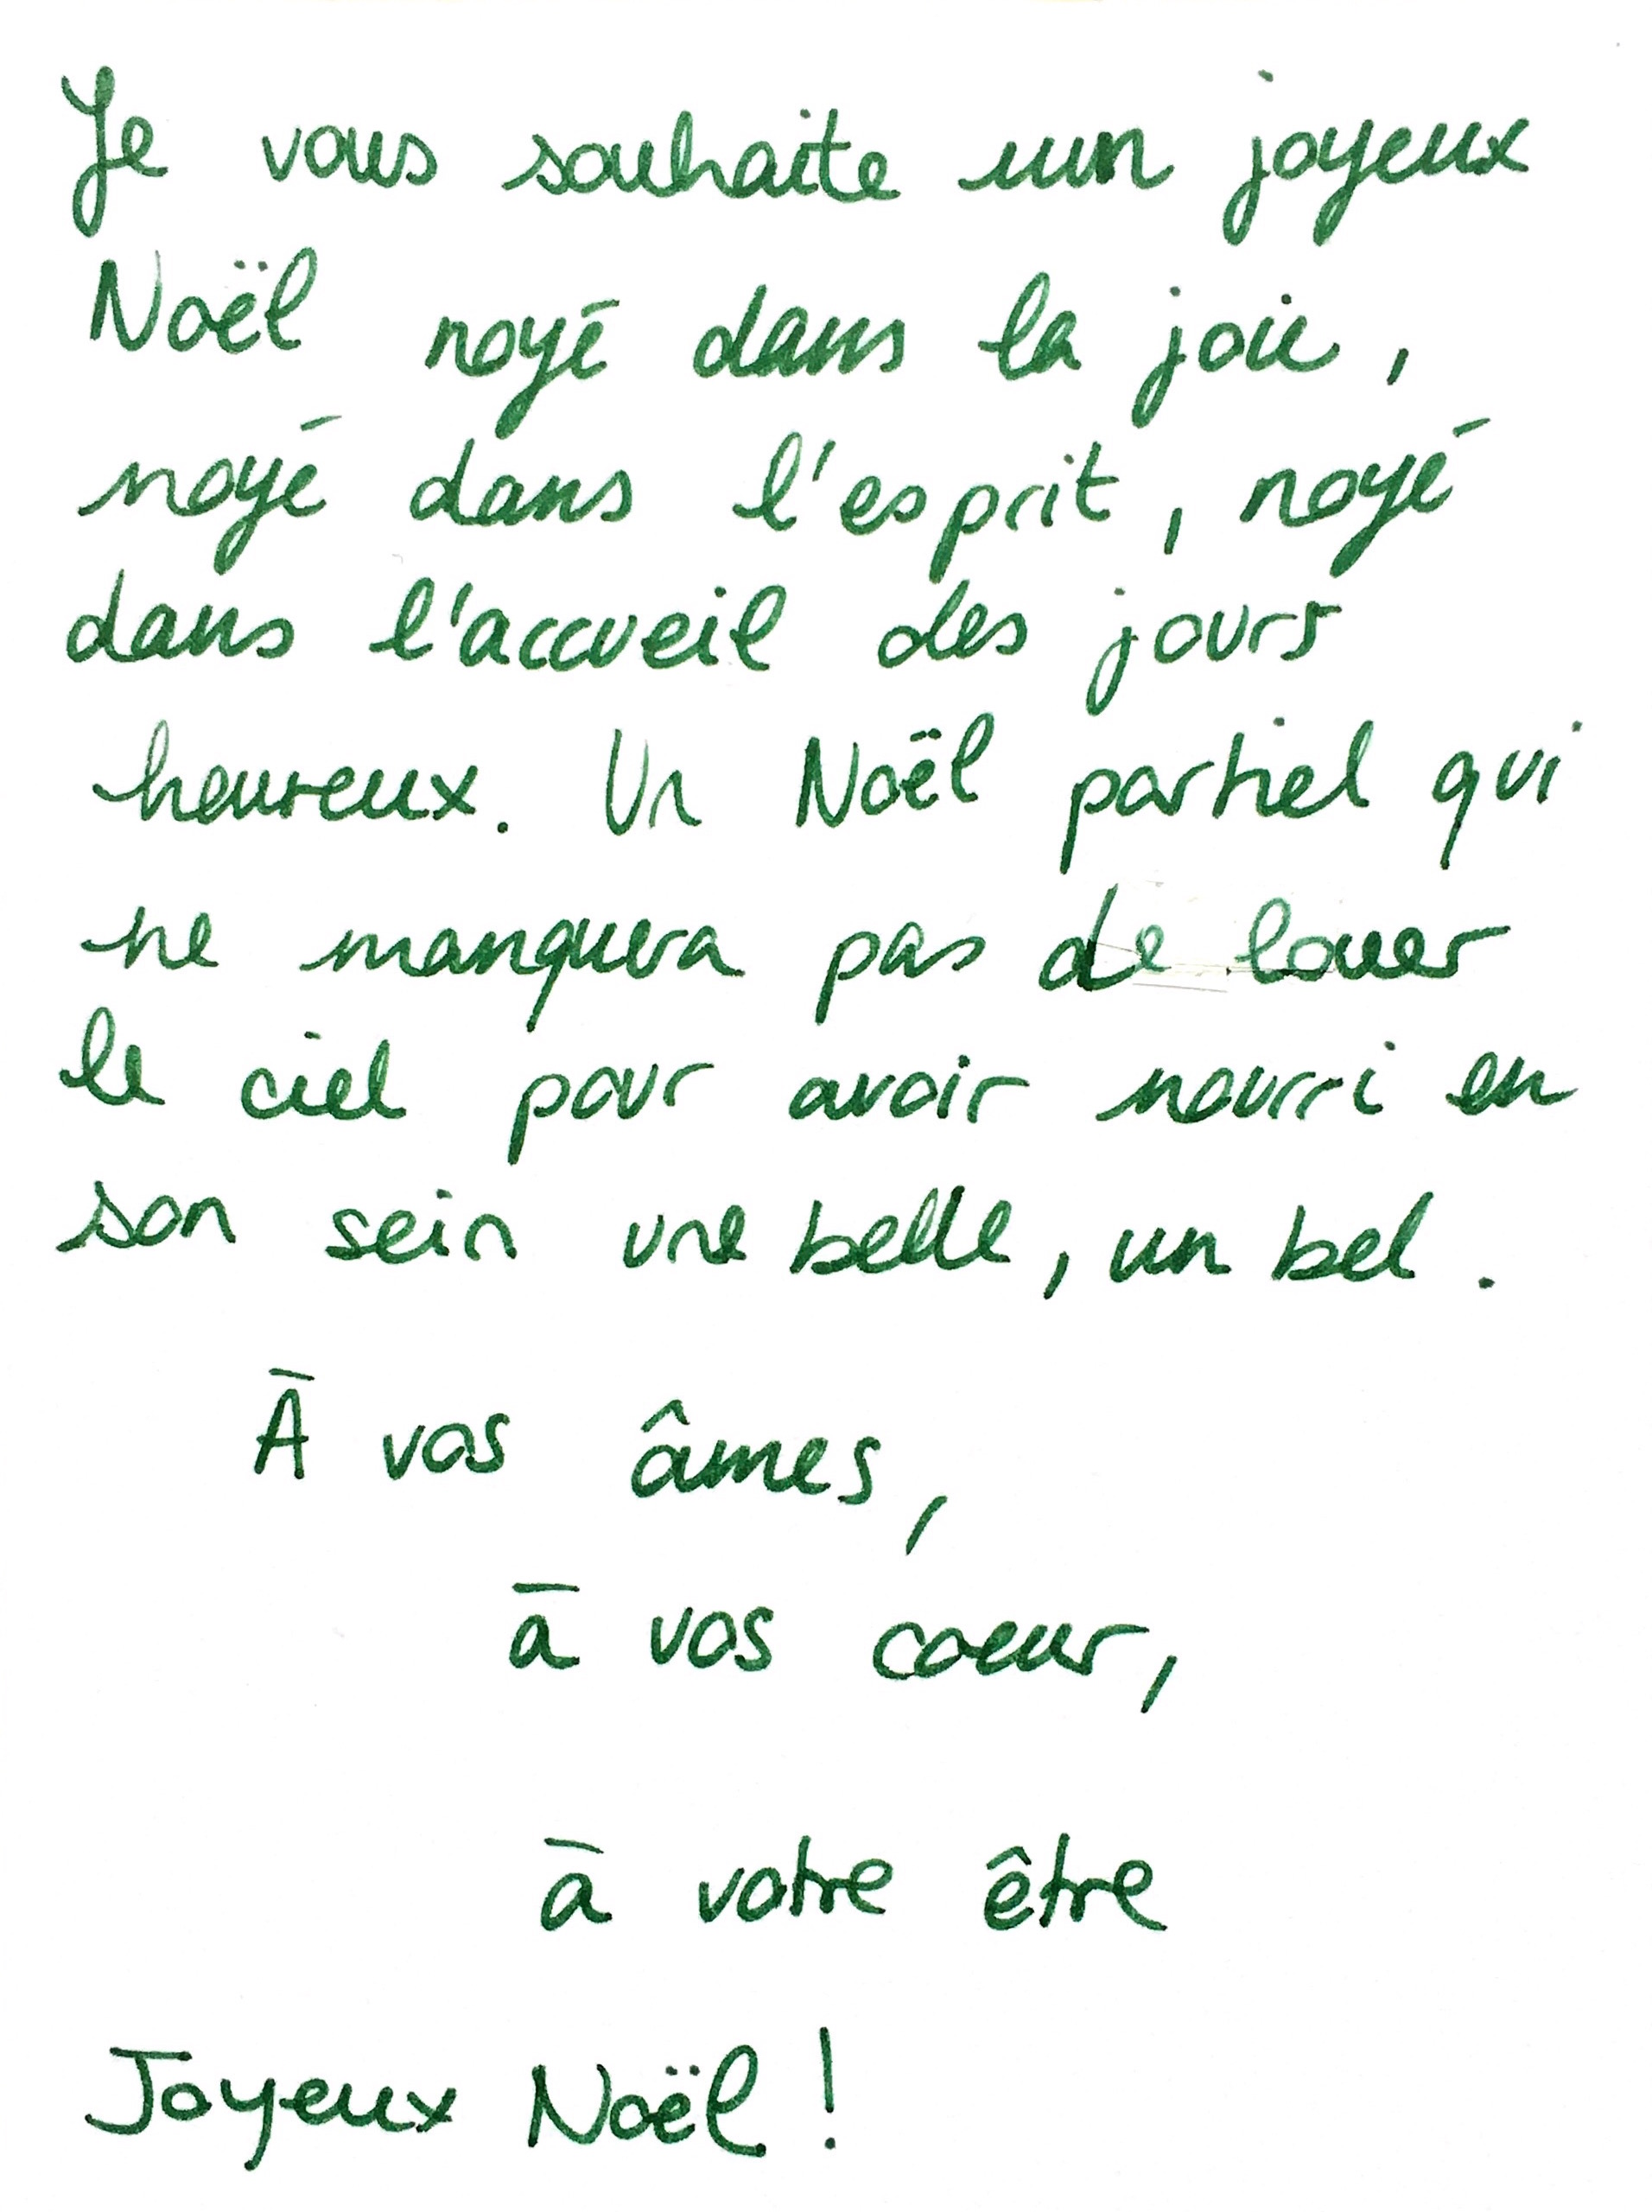 Je vous souhaite un joyeux
Noël noyé dans la joie,
noyé dans l'esprit, noyé
dans l'accueil des jours
heureux. Un Noël partiel qui
ne manquera pas de louer
le ciel pour avoir nourri en
son sein une belle, un bel.
À vos âmes,
à vos coeur,
à votre être
Joyeux Noël !